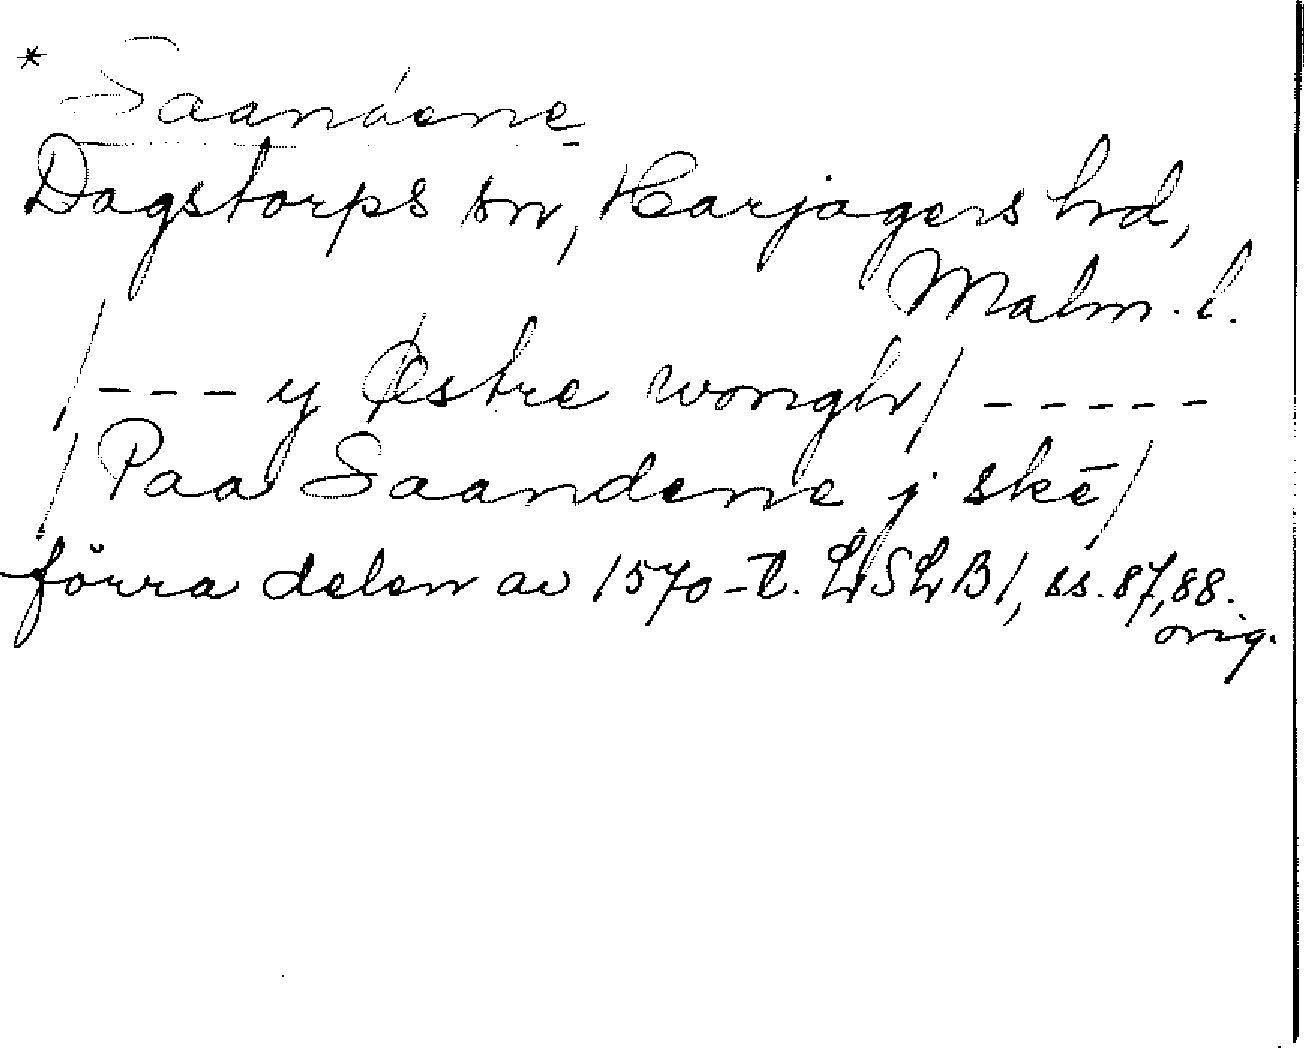 * Saandene
Dagstorps sn, Harjagers hrd,
Malm. l.
/ - - - y Østre wongh / - - - - -
/ Paa Saandene j skē /
förra delen av 1570-t. LSLB1, ss. 87, 88.
orig.